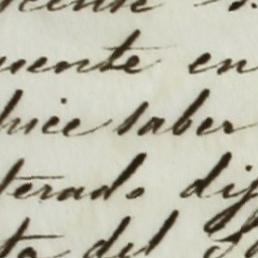 uente en
hice saber
terado dij
to del